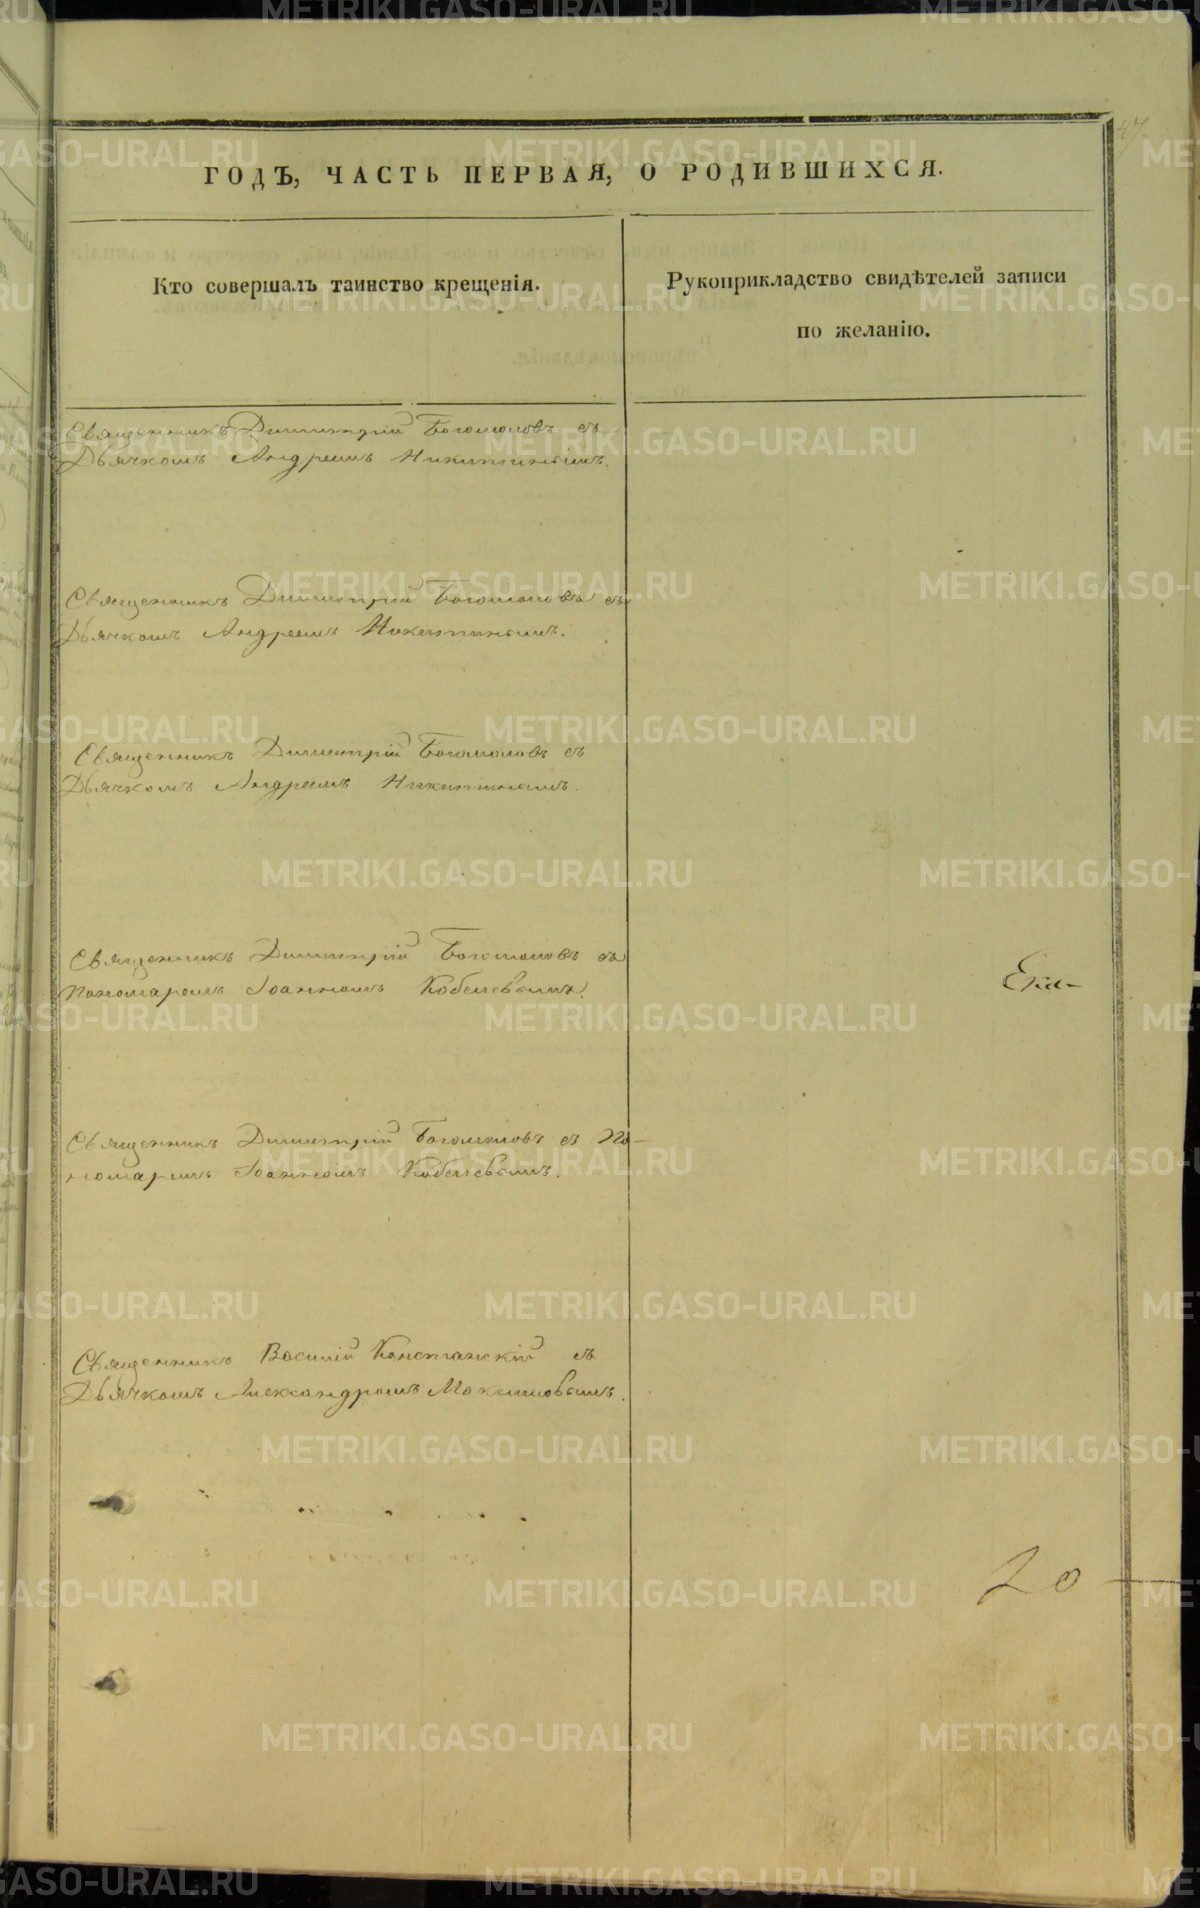 47.
ГОДЪ, ЧАСТЬ ПЕРВАЯ, О РОДИВШИХСЯ.
Кто совершалъ таинство крещенія.
Рукоприкладство свидѣтелей записи
по желанію.
Священникъ Димитрій Богомоловъ съ
Дьячкомъ Андреемъ Никитинымъ.
Священникъ Димитрій Богомоловъ съ
Дьячкомъ Андреемъ Никитинымъ.
Священникъ Димитрій Богомоловъ съ
Дьячкомъ Андреемъ Никитинымъ.
Священникъ Димитрій Богомоловъ съ
Пономаремъ Іоанномъ Кобелевымъ.
Ека-
Священникъ Димитрій Богомоловъ съ По-
номаремъ Іоанномъ Кобелевымъ.
Священникъ Василій Констанскій съ
Дьячкомъ Александромъ Максимовымъ.
20
METRIKI.GASO-URAL.RU